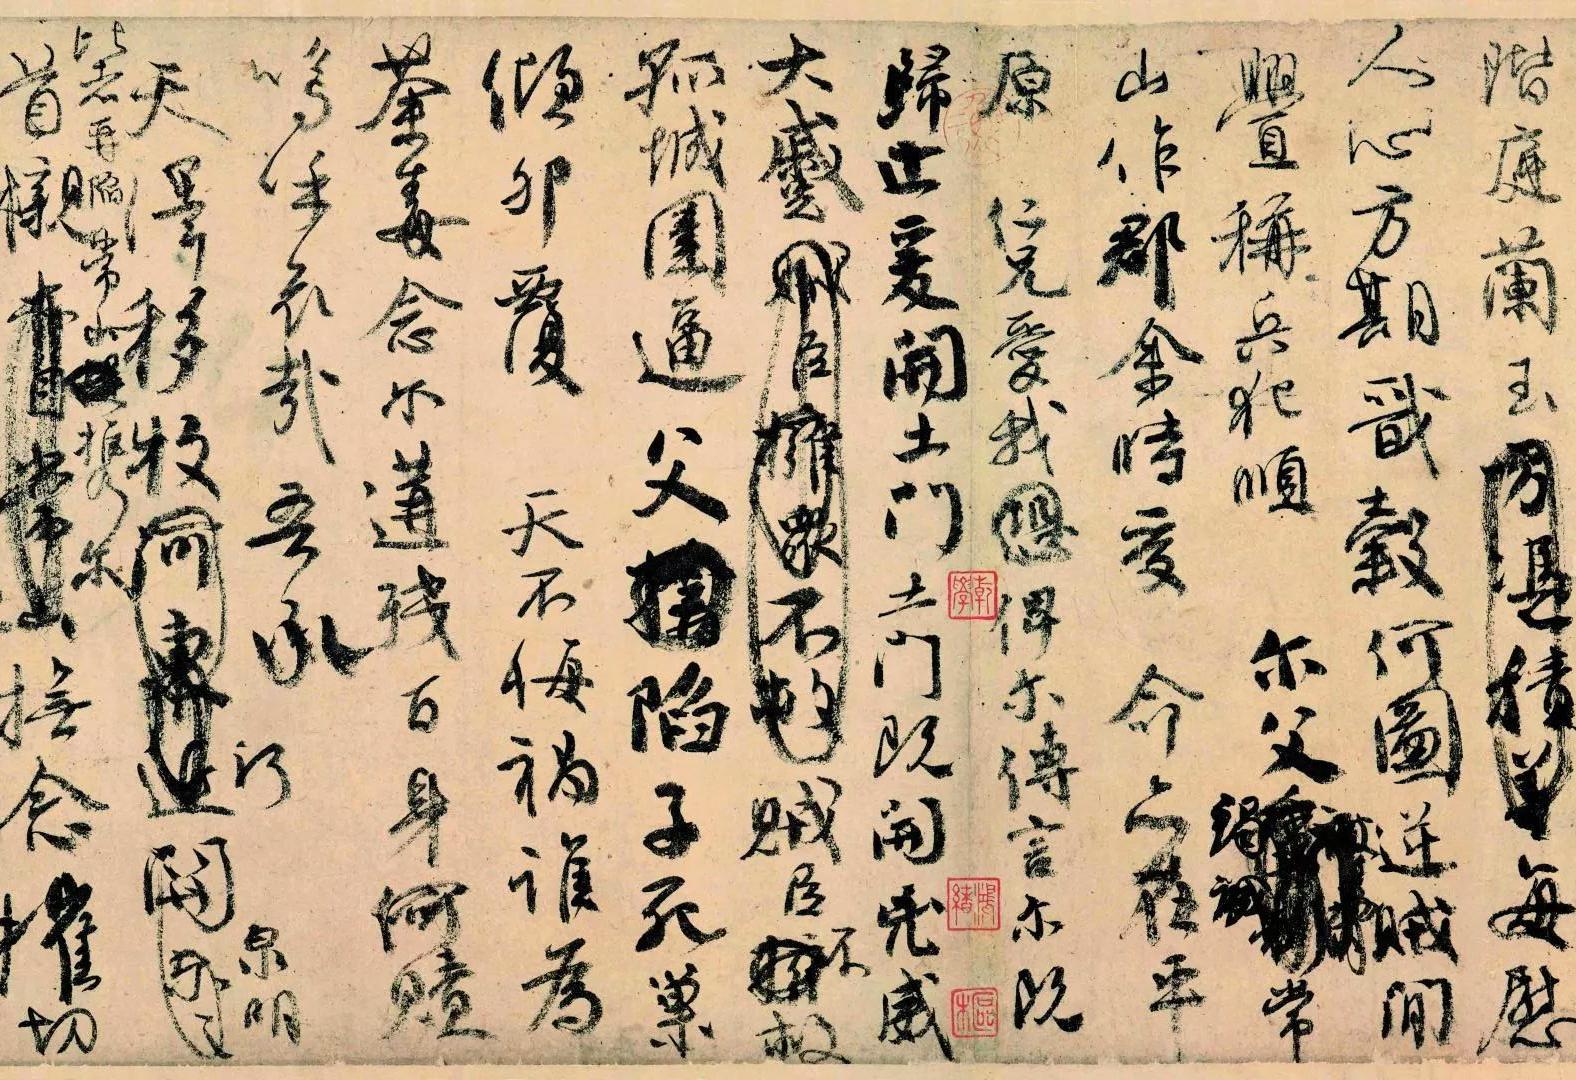 階庭蘭玉方憑積善每慰
人心方期戩穀何圖逆賊閒
釁稱兵犯順爾父竭誠常
山作郡余時受命亦在平
原仁兄愛我恐俾爾傳言爾既
歸止爰開土門土門既開凶威
大蹙賊臣擁眾不救賊臣不救
孤城圍逼父陷子死巢
傾卵覆天不悔禍誰為
荼毒念爾遘殘百身何贖
嗚呼哀哉吾承
天澤移牧河東近河關泉明
比者再陷常山攜爾
首櫬及常山撫念摧切